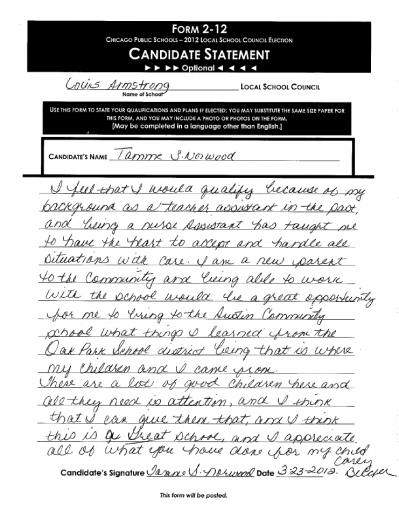 FORM 2-12
CHICAGO PUBLIC SCHOOLS – 2012 LOCAL SCHOOL COUNCIL ELECTION
CANDIDATE STATEMENT
► ► ► ► Optional ◄ ◄ ◄ ◄
Louis Armstrong LOCAL SCHOOL COUNCIL
Name of School
USE THIS FORM TO STATE YOUR QUALIFICATIONS AND PLANS IF ELECTED; YOU MAY SUBSTITUTE THE SAME SIZE PAPER FOR
THIS FORM, AND YOU MAY INCLUDE A PHOTO OR PHOTOS ON THE FORM.
[May be completed in a language other than English.]
CANDIDATE'S NAME Tamme S. Norwood
I feel that I would qualify because of my
background as a teacher assistant in the past,
and being a nurse assistant has taught me
to have the heart to accept and handle all
situations with care. I am a new parent
to the community and being able to work
with the school would be a great opportunity
for me to bring to the Austin Community
school what things I learned from the
Oak Park School district being that is where
my children and I came from.
There are a lot of good children here and
all they need is attention, and I think
that I can give them that, and I think
this is a Great School, and I appreciate
all of what you have done for my child
Carey
Belcher
Candidate's Signature Tamme S. Norwood Date 3-23-2012
This form will be posted.